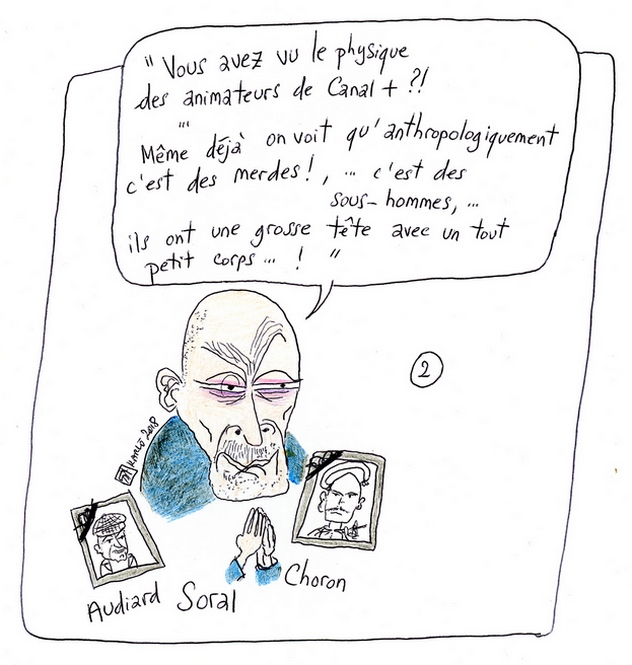 " Vous avez vu le physique
des animateurs de Canal + ?!
...
Même déjà on voit qu'anthropologiquement
c'est des merdes !, ... c'est des
sous-hommes, ...
ils ont une grosse tête avec un tout
petit corps ... ! "
2
KARLO 2018
Audiard
Soral
Choron